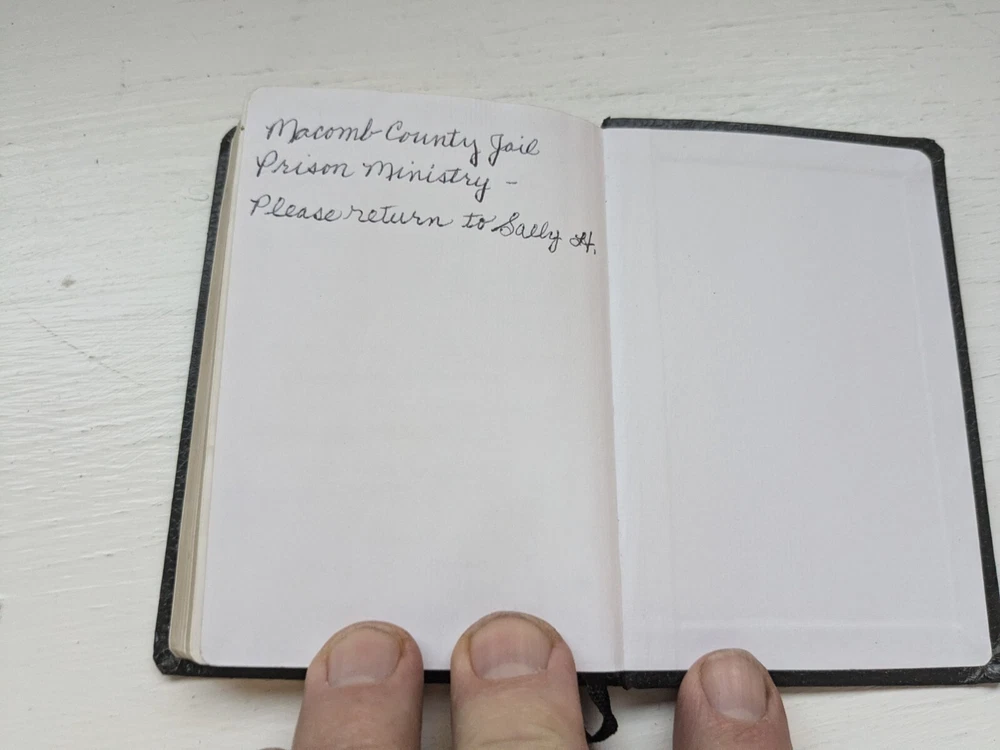 Macomb County Jail
Prison Ministry -
Please return to Sally H.